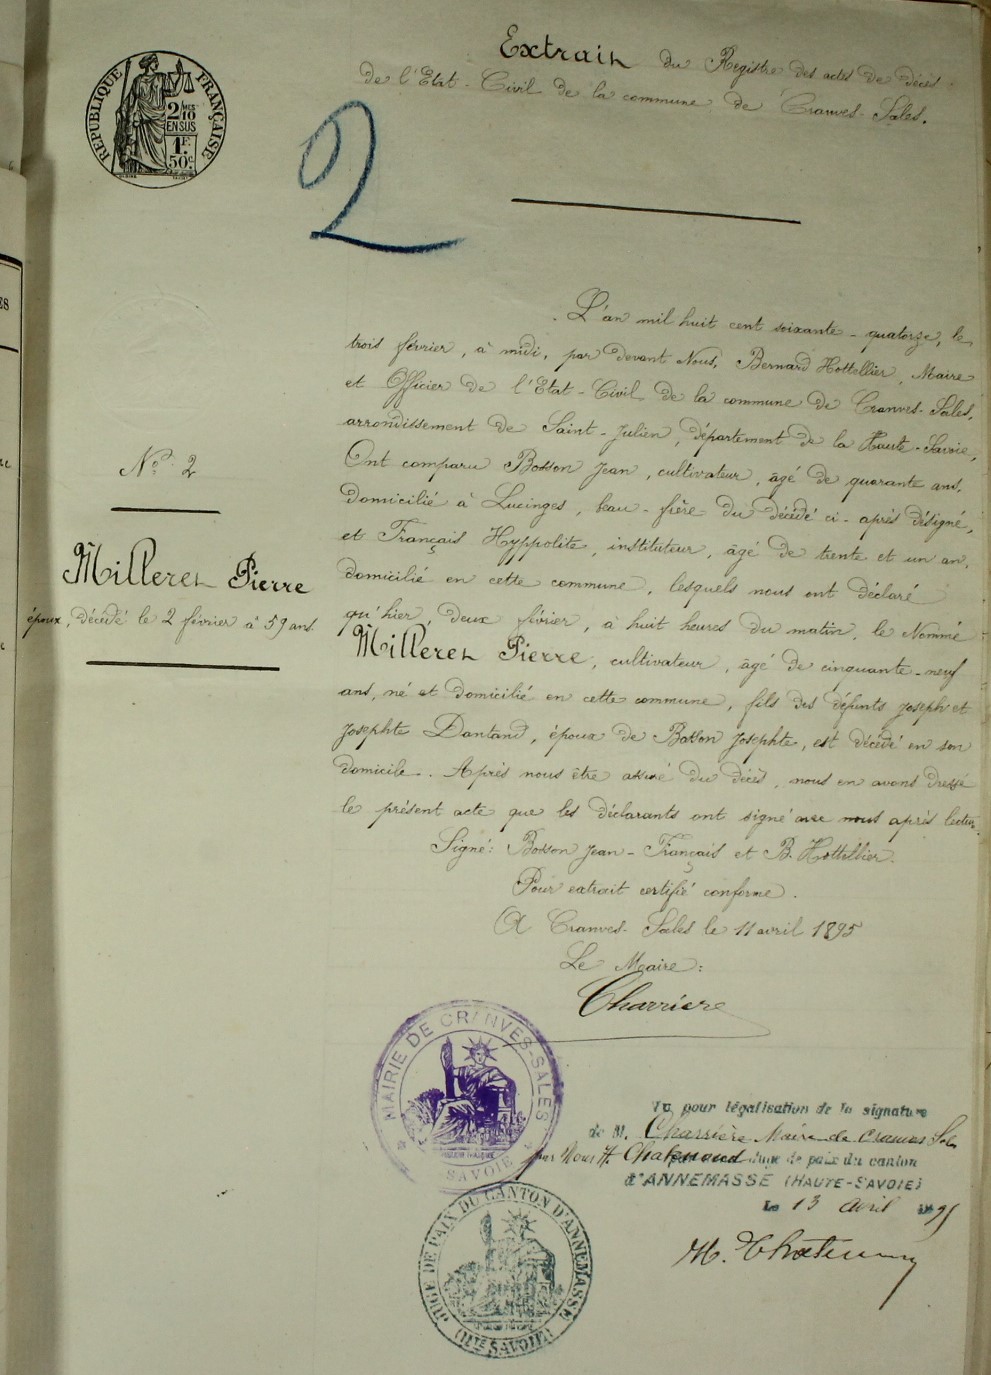 Extrait du Registre des actes de décès
de l'Etat-Civil de la commune de Cranves-Sales.
RÉPUBLIQUE FRANÇAISE
2/10 EN SUS
1F. 50c
2
L'an mil huit cent soixante-quatorze, le
trois février, à midi, par devant Nous, Bernard Hottellier, Maire
et Officier de l'Etat-Civil de la commune de Cranves-Sales,
arrondissement de Saint-Julien, département de la Haute-Savoie,
Ont comparu Bosson Jean, cultivateur, âgé de quarante ans,
domicilié à Lucinges, beau-frère du décédé ci-après désigné,
et Français Hyppolite, instituteur, âgé de trente et un an,
domicilié en cette commune, lesquels nous ont déclaré
qu'hier, deux février, à huit heures du matin, le Nommé
Milleret Pierre, cultivateur, âgé de cinquante-neuf
ans, né et domicilié en cette commune, fils des défunts Joseph et
Josephte Dantand, époux de Bosson Josephte, est décédé en son
domicile. Après nous être assuré du décès, nous en avons dressé
le présent acte que les déclarants ont signé avec nous après lecture.
Signé: Bosson Jean - Français et B. Hottellier.
Pour extrait certifié conforme.
A Cranves-Sales le 11 avril 1895
Le Maire:
Charriere
No. 2
Milleret Pierre
époux, décédé le 2 février à 59 ans.
MAIRIE DE CRANVES-SALES
SAVOIE
Vu pour légalisation de la signature
de M. Charrière Maire de Cranves Sales
par Nous juge de paix du canton
d'ANNEMASSE (HAUTE-SAVOIE)
Le 13 avril 1895
JUGE DE PAIX DU CANTON D'ANNEMASSE
(HTE SAVOIE)